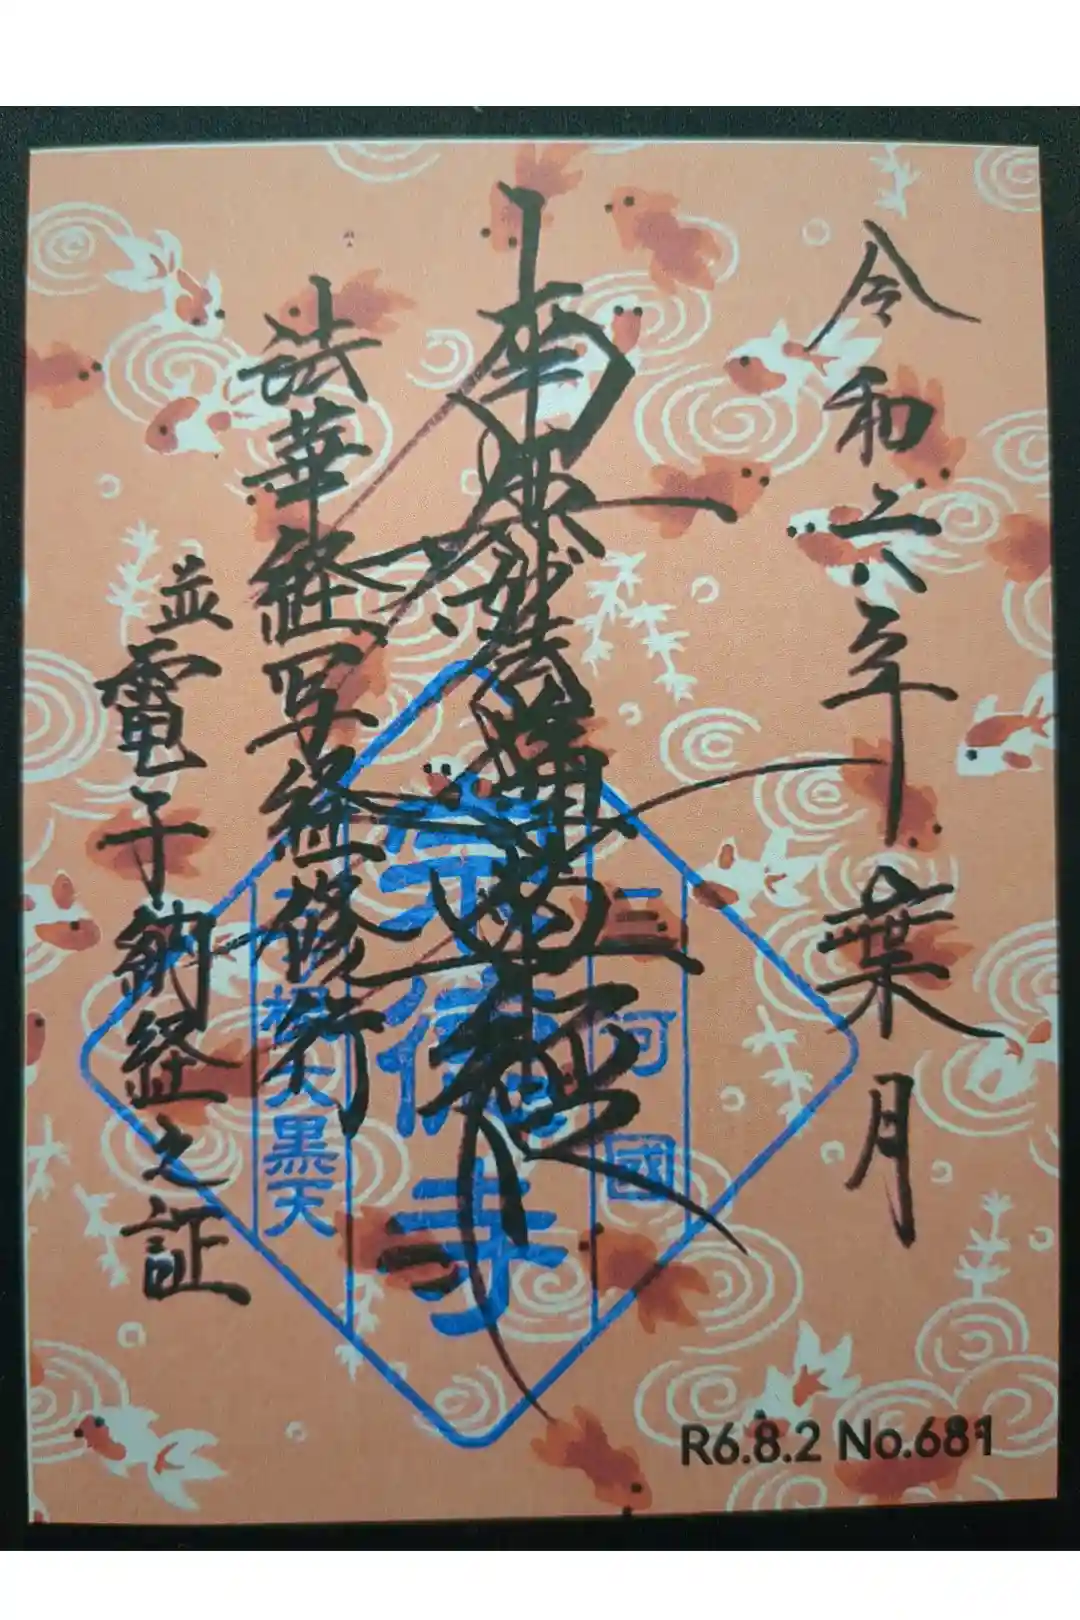 令和六年葉月
南無妙法蓮華経
法華経写経修行
並電子納経之証
三河國
寺
大黒天
R6.8.2 No.681